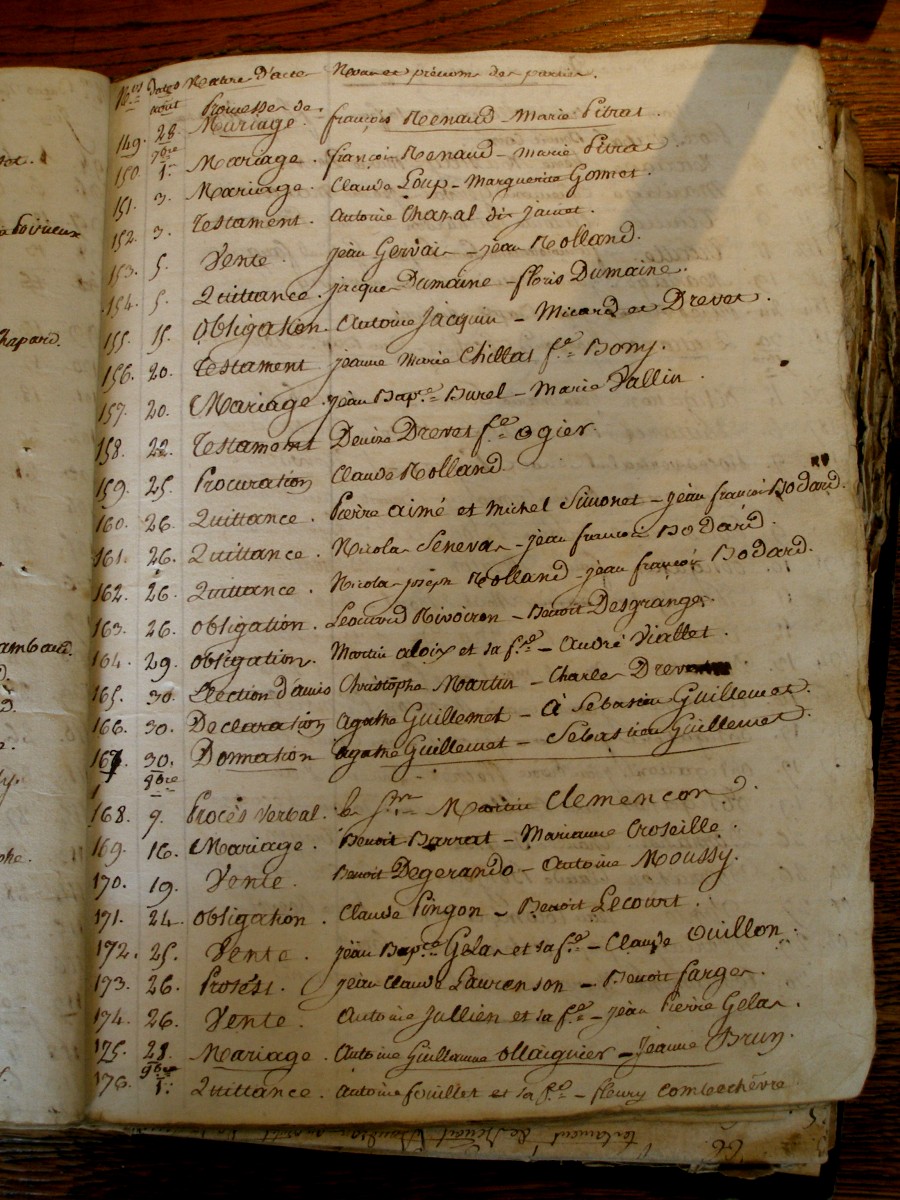 Nos Dates Nature d'acte Noms et prénoms des parties.
aout
149. 28. Promesse de Mariage. françois Renaud - Marie Pitrat
7bre
150. 1er Mariage. françois Renaud - Marie Pitrat
151. 3. Mariage. Claude Loup - Marguerite Gonnet.
152. 3. Testament. Antoine Chazal dit
153. 5. Vente. jean Gervais - jean Rolland.
154. 5. Quittance. jacques Dumaine - floris Dumaine.
155. 15. Obligation. Antoine Jacquin - Micard et Drevet.
156. 20. Testament jeanne Marie Chillat fe. Bony.
157. 20. Mariage. jean Bapte. Burel - Marie Vallin.
158. 22. Testament Denise Drevet fe. Ogier
159. 25. Procuration Claude Rolland
160. 26. Quittance. Pierre aimé et Michel Simonet - jean françois Bodard.
161. 26. Quittance. Nicolas Senevas - jean francois Bodard.
162. 26. Quittance. Nicolas joseph Rolland - jean françois Bodard.
163. 26. obligation. Leonard Rivoiron - Benoit Desgranges.
164. 29. obligation. Martin aloix et sa fe. - André Viallet.
165. 30. Election d'amis Christophe Martin - Charles Drevet
166. 30. Declaration agathe Guillemet - à Sebastien Guillemet.
167 30. Donnation agathe Guillemet - Sebastien Guillemet.
8bre
168. 9. Procès verbal. le Clemencon.
169. 16. Mariage. Benoit Barrat - Marianne Croseille.
170. 19. Vente. Benoit Degerando - Antoine Moussy.
171. 24. obligation. Claude Pingon - Benoit Lecourt.
172. 25. Vente. jean Bapte. Gelas et sa fe. - Claude Ouillon.
173. 26. Protest. jean Claude Laurenson - Benoit farges.
174. 26. Vente. Antoine Jullien et sa fe. - jean Pierre Gelas.
175. 28. Mariage. Antoine Guillaume ollaignier - Jeanne Brun.
9bre
176. 1er. Quittance. Antoine fouillet et sa fe. - fleury combechèvre